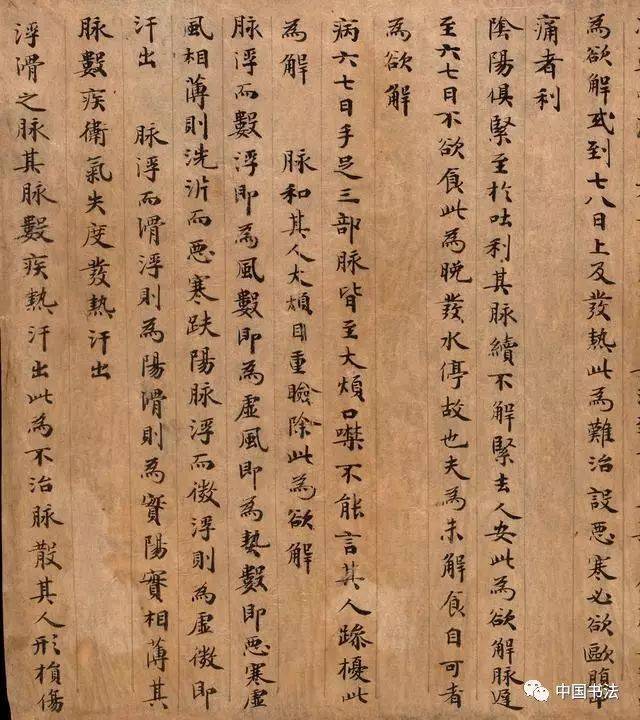 為欲解或到七八日上反發熱此為難治設惡寒必欲歐腹中
痛者利
陰陽俱緊至於吐利其脉續不解緊去人安此為欲解脉遲
至六七日不欲食此為晚發水停故也夫為未解食自可者
為欲解
病六七日手足三部脉皆至大煩口噤不能言其人躁擾此
為解 脉和其人大煩目重瞼除此為欲解
脉浮而數浮即為風數即為虛風即為熱數即惡寒虛
風相薄則洗淅而惡寒趺陽脉浮而微浮則為虛微即
汗出 脉浮而滑浮則為陽滑則為實陽實相薄其
脉數疾衛氣失度發熱汗出
浮滑之脉其脉數疾熱汗出此為不治脉散其人形損傷
中国书法